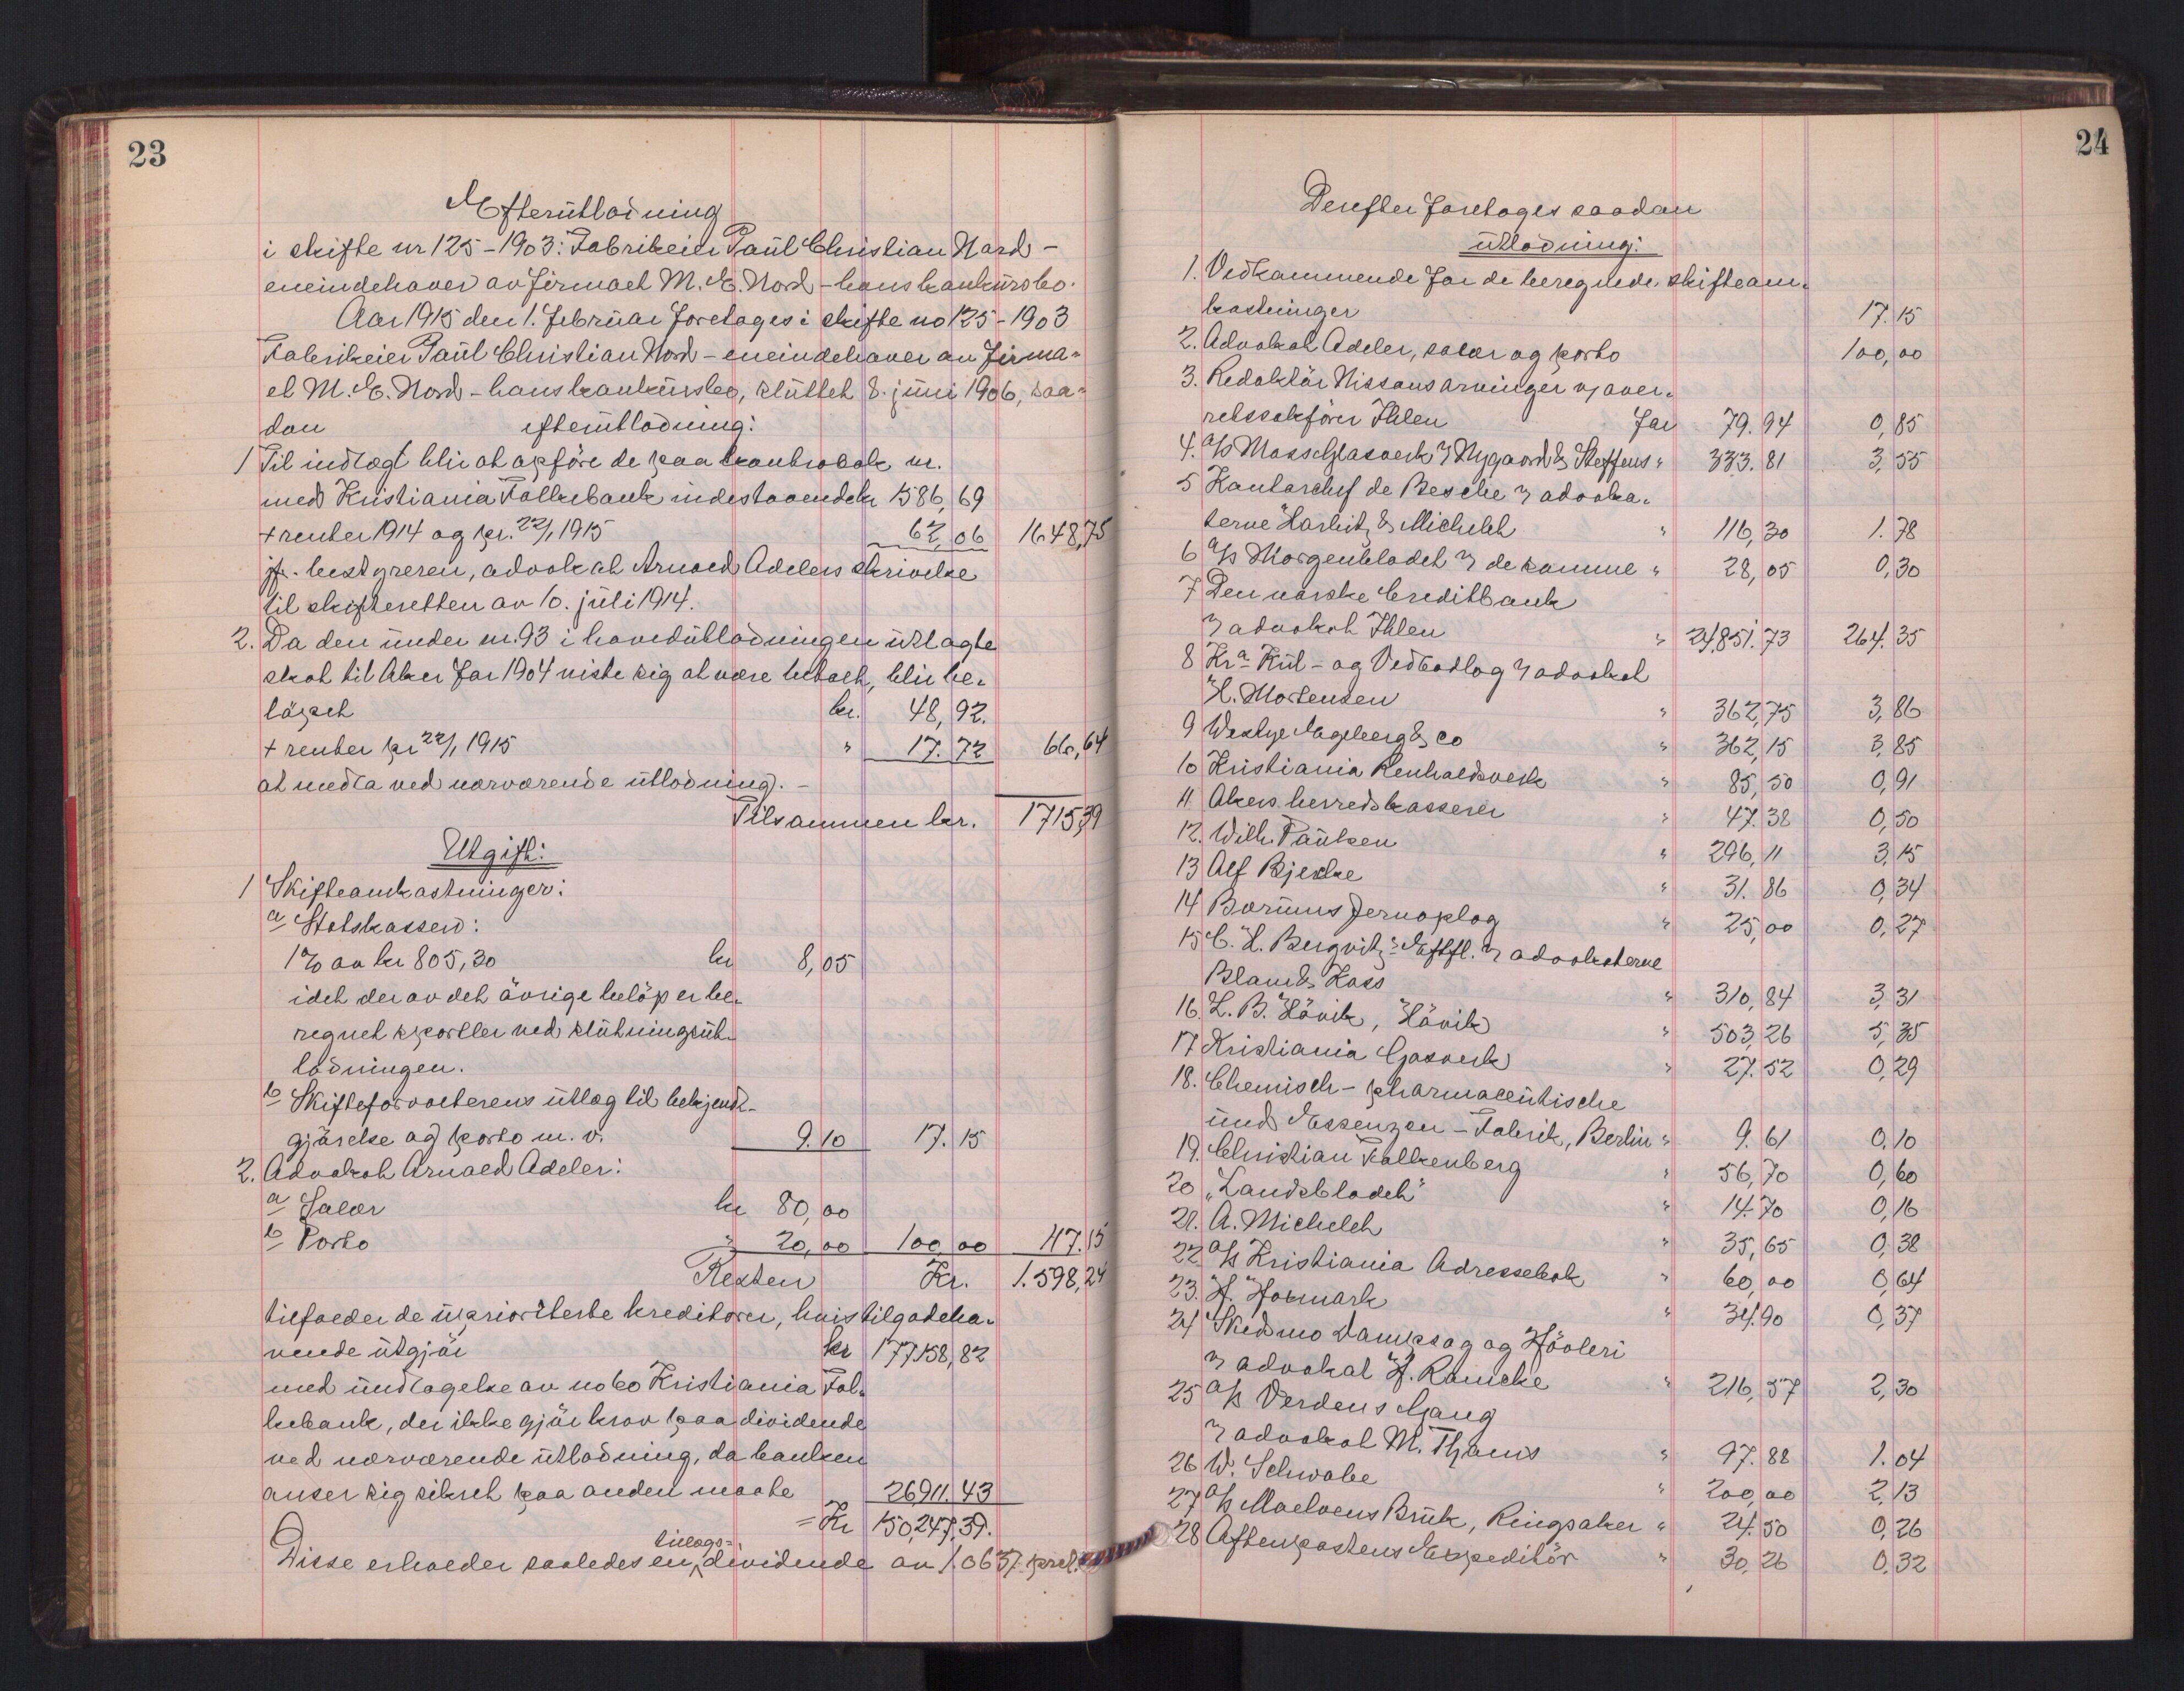 23
Efterutlodning
i skifte nr 125-1903: Fabrikeier Paul Christian Nord -
eneindehaver av firmaet M. E. Nord - hans konkursbo.
Aar 1915 den 1. februar foretoges i skifte no 125-1903
Fabrikeier Paul Christian Nord - eneindehaver av firma-
et M. E. Nord - hans konkursbo, sluttet 8. juni 1906, saa-
dan efterutlodning:
1 Til indtægt blir at opföre de paa kontrabok nr.
med Kristiania Folkebank indestaaende kr 1586,69
+ renter 1914 og pr. 22/1 1915 62,06 1648,75
jf. bestyreren, advokat Arnold Adelers skrivelse
til skifteretten av 10. juli 1914.
2. Da den under nr. 93 i hovedutlodningen utlagte
skat til Aker for 1904 viste sig at være betalt, blir be-
löpet kr. 48,92.
+ renter pr 22/1 1915 " 17.72 66,64
at medta ved nærværende utlodning. -
Tilsammen kr. 1715,39
Utgift:
1 Skifteomkostninger:
a Statskassen:
1% av kr 805,30 kr 8,05
idet der av det övrige belöp er be-
regnet sportler ved slutningsut-
lodningen.
b Skifteforvalterens utlæg til bekjendt-
gjörelse og porto m. v. 9.10 17.15
2. Advokat Arnold Adeler:
a Salær kr 80,00
b Porto " 20,00 100,00 117.15
Resten Kr. 1.598,24
tilfalder de uprioriterte kreditorer, hvis tilgodeha-
vende utgjör kr 177158,82
med undtagelse av no 60 Kristiania Fol-
kebank, der ikke gjör krav paa dividende
ved nærværende utlodning, da banken
anser sig sikret paa anden maate 26911.43
= Kr 150,247,39.
Disse erholder saaledes en tillægs- dividende av 1.0637 prct.
24
Derefter foretoges saadan
utlodning:
1. Vedkommende for de beregnede skifteom-
kostninger 17.15
2. Advokat Adeler, salær og porto 100,00
3. Redaktör Nissens arvinger v/ over-
retssakförer Ihlen for 79.94 0,85
4. a/s Moss Glasverk v/ Nygaard & Steffens " 333.81 3,55
5 Kontorchef de Besche v/ advoka-
terne Harbitz & Michelet " 116,30 1.78
6 a/s Morgenbladet v/ de samme " 28,05 0,30
7 Den norske Creditbank
v/ advokat Ihlen " 24,851.73 264.35
8 Kra Kul- og Vedutsalg v/ advokat
H. Mortensen " 362,75 3,86
9 Westye Egeberg & co " 362,15 3,85
10 Kristiania Renholdsverk " 85,50 0,91
11 Akers herredskasserer " 47.38 0,50
12. Wilh. Paulsen " 296,11 3,15
13 Alf Bjercke " 31.86 0,34
14 Bærums Jernoplag " 25,00 0,27
15 C. H. Bergwitz' Eftfl. v/ advokaterne
Blom & Koss " 310,84 3,31
16. L. B. Hövik, Hövik " 503,26 5,35
17 Kristiania Gasverk " 27.52 0,29
18. Chemisch-pharmaceutische
und Essenzen-Fabrik, Berlin " 9.61 0,10
19. Christian Falkenberg " 56,70 0,60
20 "Landsbladet" " 14.70 0,16
21. A. Michelet " 35,65 0,38
22 a/s Kristiania Adressebok " 60,00 0,64
23. H. Hofmark " 34.90 0,37
24 Skedsmo Dampsag og Hövleri
v/ advokat H. Ramcke " 216,57 2,30
25 a/s Verdens Gang
v/ advokat M. Thams " 97.88 1.04
26 W. Schwabe " 200,00 2,13
27 a/s Moelvens Bruk, Ringsaker " 24.50 0,26
28 Aftenpostens Expeditör " 30,26 0,32